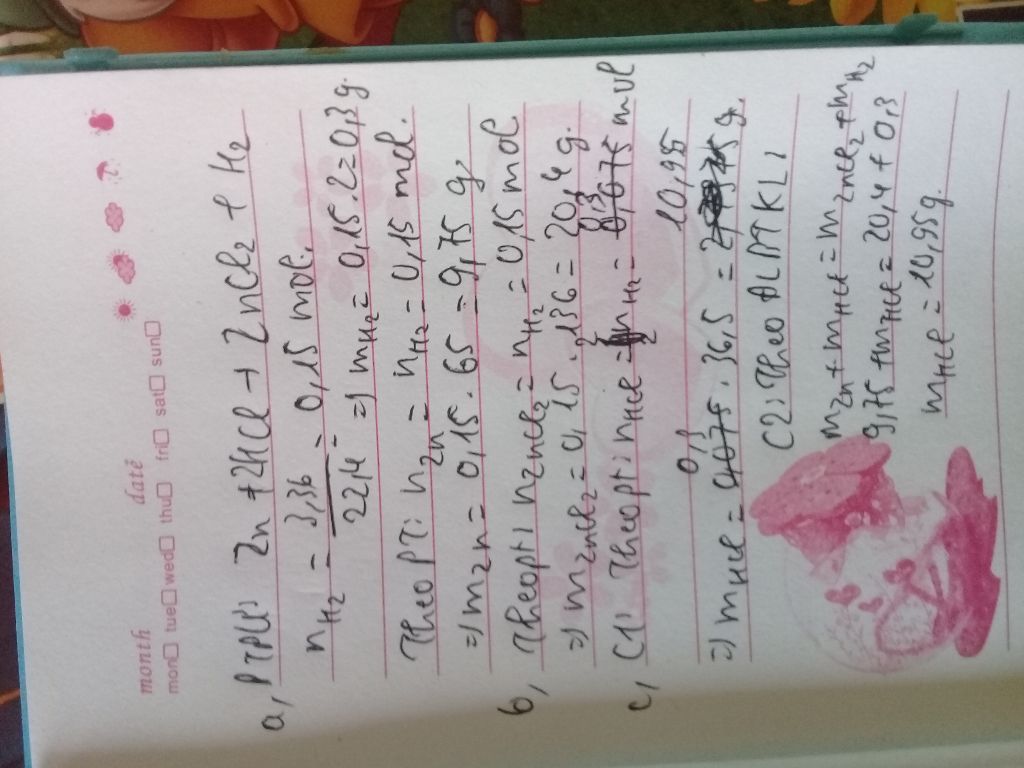 month date
mon tue wed thu fri sat sun
a, PTPƯ: Zn + 2HCl → ZnCl2 + H2
nH2 = 3,36 / 22,4 = 0,15 mol.
=) mH2 = 0,15.2=0,3 g.
Theo PT: nZn = nH2 = 0,15 mol.
=) mZn = 0,15 . 65 = 9,75 g.
b, Theo pt: nZnCl2 = nH2 = 0,15 mol
=) mZnCl2 = 0,15 . 136 = 20,4 g.
c, C1: Theo pt: nHCl = 2 nH2 = 0,3 mol
=) mHCl = 0,3 . 36,5 = 10,95 g.
C2: Theo ĐLBTKL:
mZn + mHCl = mZnCl2 + mH2
9,75 + mHCl = 20,4 + 0,3
mHCl = 10,95g.